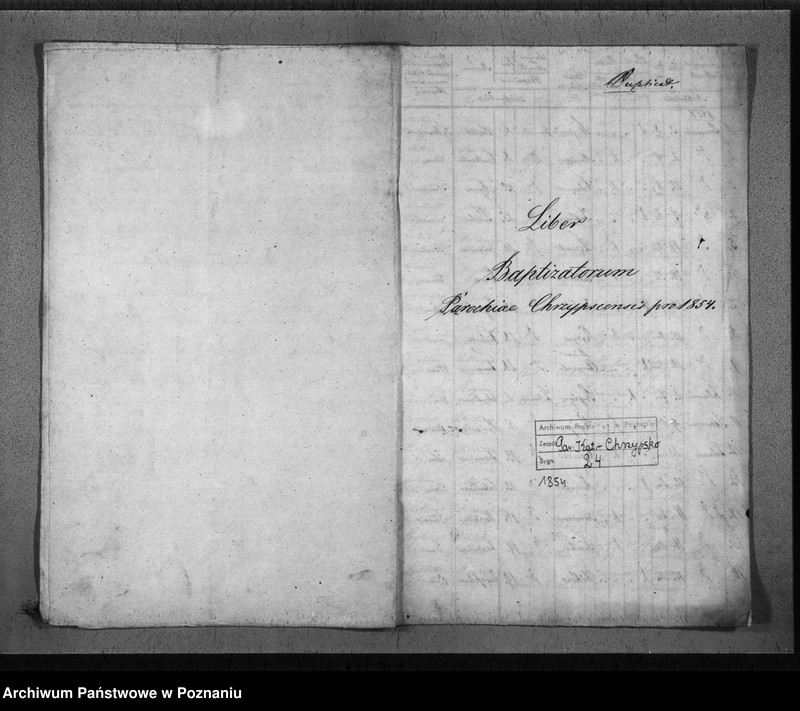 Duplicat.
Liber
Baptizatorum
Parochiae Chrzypscensis pro 1854.
Archiwum w Poznaniu
Zespół Par. Kat. - Chrzypsko
Sygn. 24
1854
Archiwum Państwowe w Poznaniu